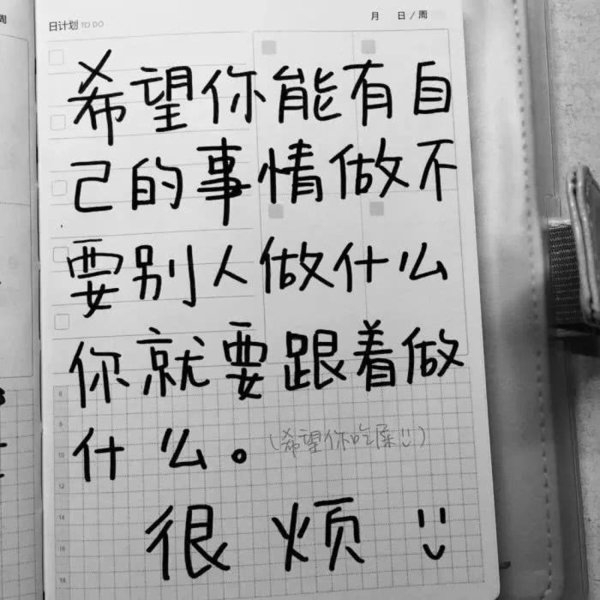 周
日计划 TO DO
月 日/周
希望你能有自
己的事情做不
要别人做什么
你就要跟着做
什么。(希望你吃屎!!)
很烦 !!